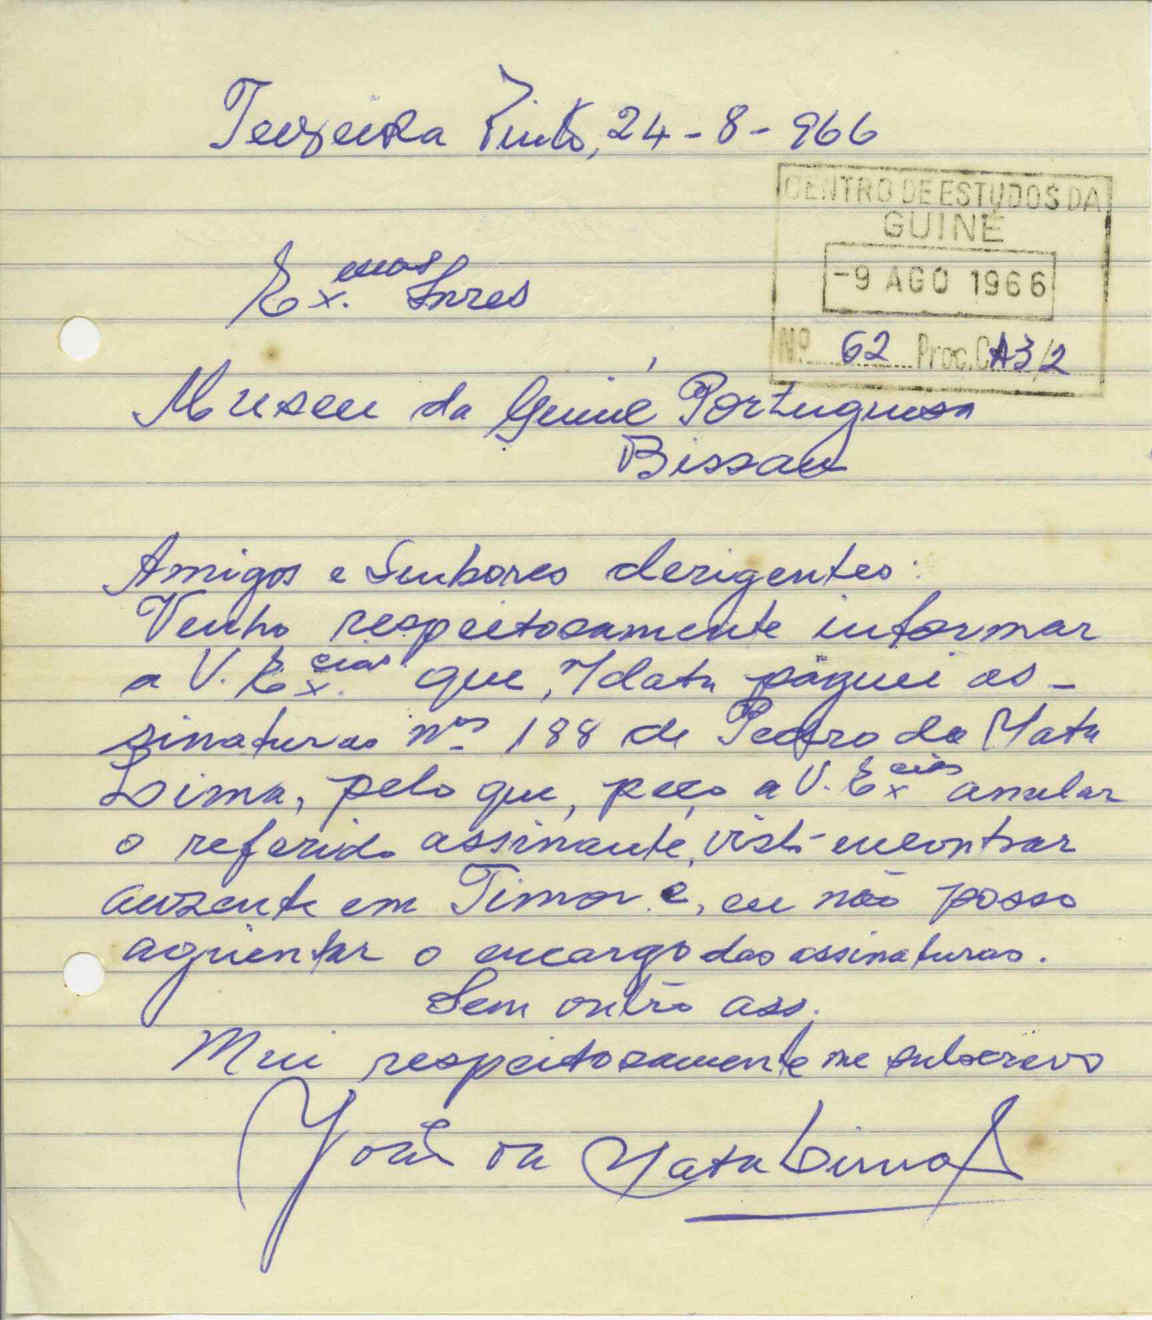 Teixeira Pinto, 24-8-966
CENTRO DE ESTUDOS DA
GUINÉ
-9 AGO 1966
Nº 62 Proc. CA3/2
Ex.mos Snres
Museu da Guiné Portuguesa
Bissau
Amigos e Senhores derigentes:
Venho respeitosamente informar
a V. Ex.cias que, n/data páguei as-
sinaturas nos 188 de Pedro da Mata
Lima, pelo que, peço a V. Excias anular
o referido assinante, visto encontrar
auzente em Timor e, eu não posso
agüentar o encargo das assinaturas.
Sem outro ass.
Mui respeitosamente me subscrevo
João da Mata Lima